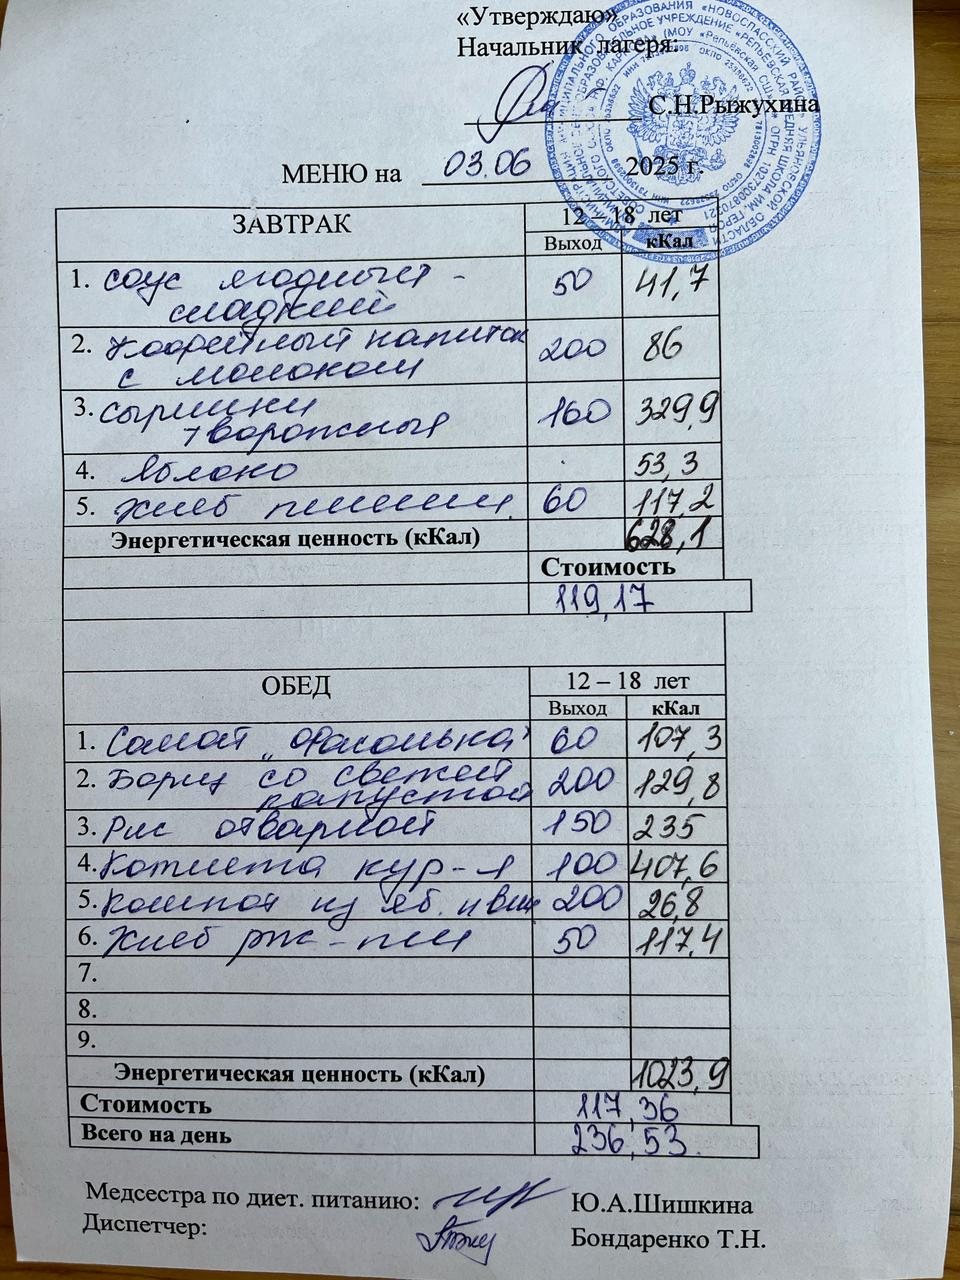 «Утверждаю»
Начальник лагеря:
С.Н.Рыжухина
МЕНЮ на 03.06 2025 г.
ЗАВТРАК 12 – 18 лет
Выход кКал
1. соус ягодный - 50 41,7
сладкий
2. Кофейный напиток 200 86
с молоком
3. сырники 160 329,9
творожные
4. Яблоко 53,3
5. Хлеб пшенич. 60 117,2
Энергетическая ценность (кКал) 628,1
Стоимость
119,17
ОБЕД 12 – 18 лет
Выход кКал
1. Салат „Фасолька" 60 107,3
2. Борщ со свежей 200 129,8
капустой
3. Рис отварной 150 235
4. Котлета кур-я 100 407,6
5. Компот из яб. и виш 200 26,8
6. Хлеб рж-пш 50 117,4
7.
8.
9.
Энергетическая ценность (кКал) 1023,9
Стоимость 117,36
Всего на день 236,53
Медсестра по диет. питанию: Ю.А.Шишкина
Диспетчер: Бондаренко Т.Н.